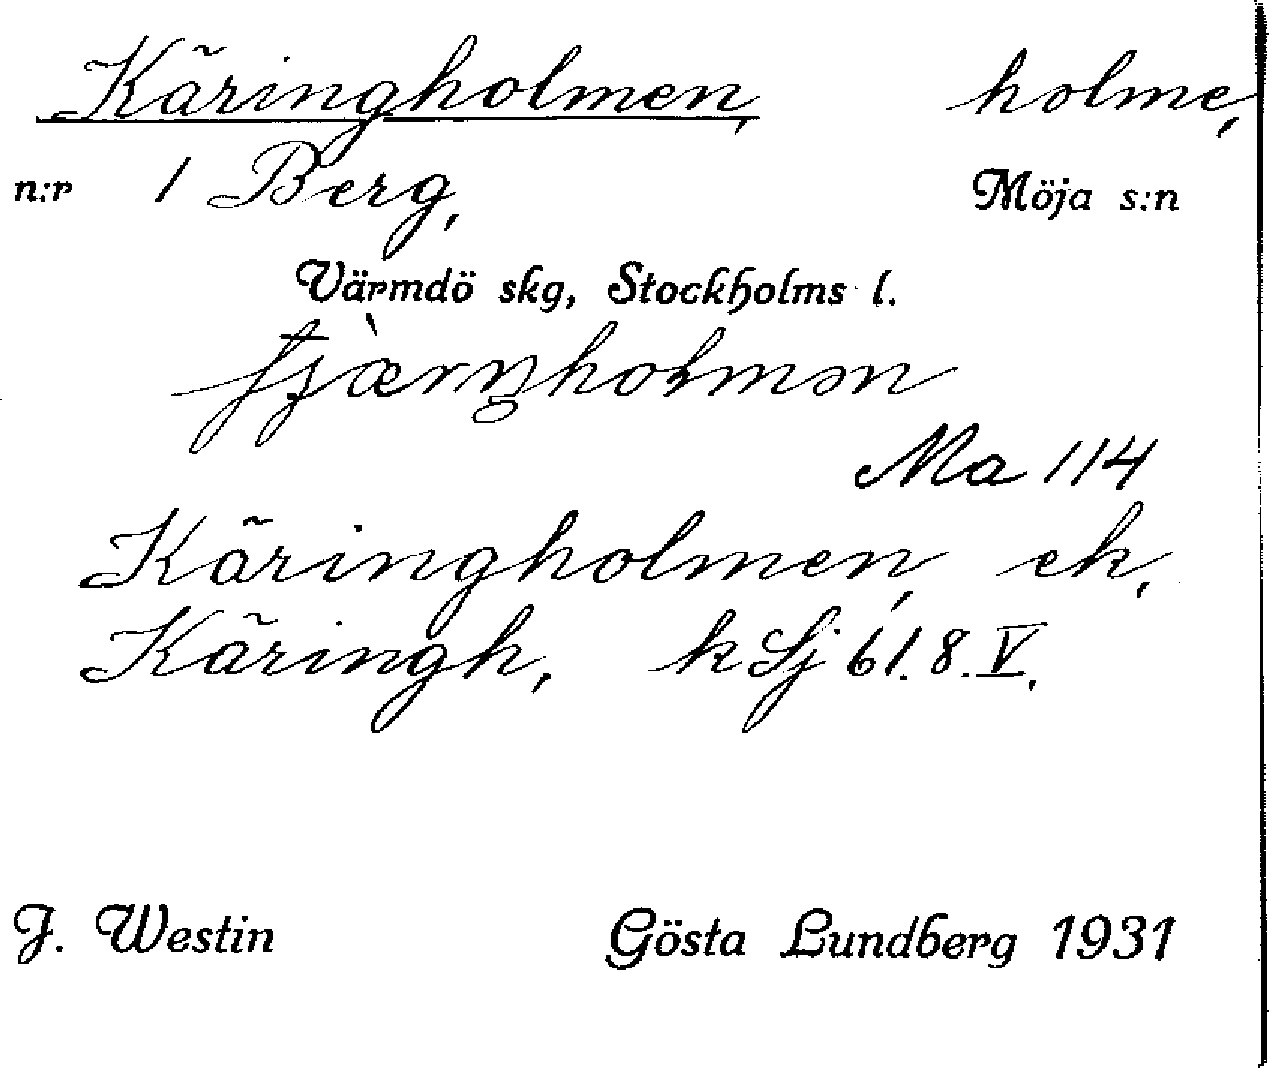 Käringholmen, holme,
n:r 1 Berg, Möja s:n
Värmdö skg, Stockholms l.
Ma 114
Käringholmen, ek,
Käringh, k Sj 61.8.V.
J. Westin Gösta Lundberg 1931